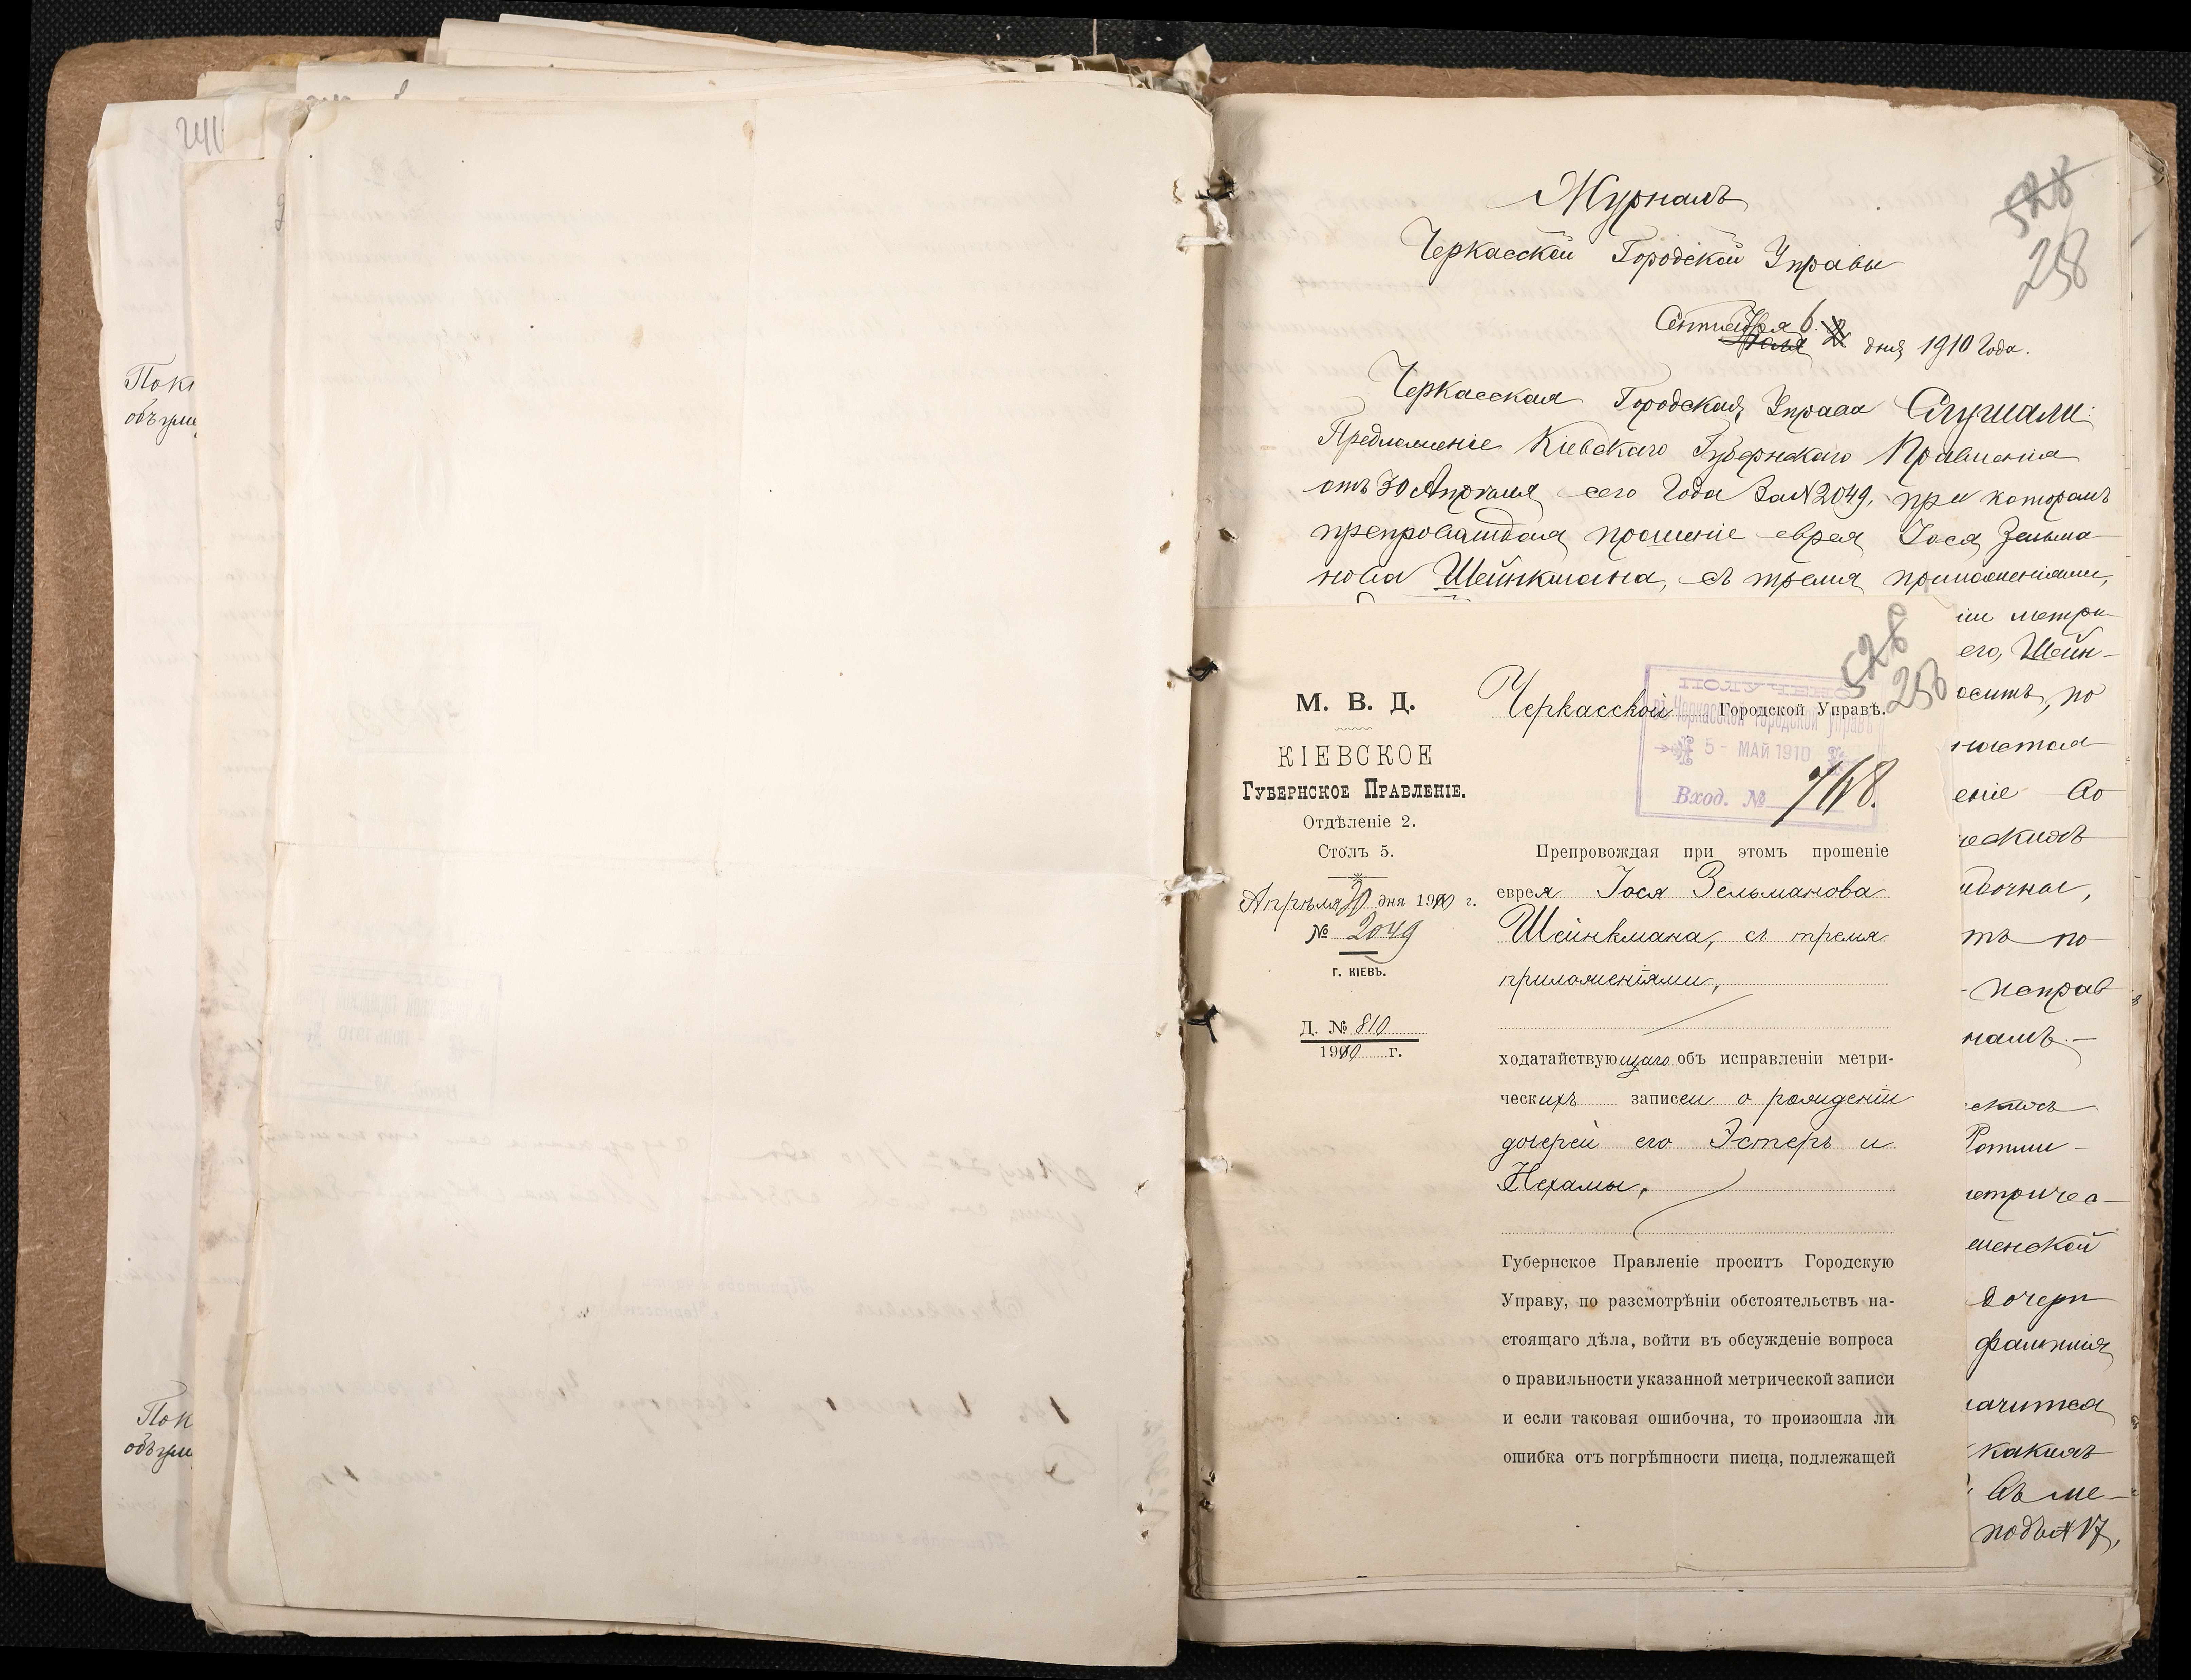 241
Поки
объѣмъ
Пок
Журналъ
Черкасской Городской Управы
528
258
Сентября 6. дня 1910 года.
Черкасская Городская Управа Слушали:
Предложеніе Кіевскаго Губернскаго Правленія
отъ 30 Апрѣля сего года за № 2049, при которомъ
препровождая прошеніе еврея Іося Зельма-
нова Шейнкмана, съ тремя приложеніями,
іи метри
его, Шейн-
оситъ, по
еніе во
ческихъ
ибочна,
тъ по-
неправ
намъ.-
Ротми-
етричес-
менской
дочери
фамилія
начится
какихъ
въ ме-
подъ № 17,
М. В. Д.
КІЕВСКОЕ
Губернское Правленіе.
Отдѣленіе 2.
Столъ 5.
Апрѣля 30 дня 1910 г.
№ 2049
г. КІЕВЪ.
Д. № 810
1910 г.
528
258
Черкасской Городской Управѣ.
ПОЛУЧЕНО
въ Черкасской Городской Управѣ
5 - МАЙ 1910
Вход. №
Препровождая при этомъ прошеніе
еврея Іося Зельманова
Шейнкмана, съ тремя
приложеніями,
ходатайствующаго объ исправленіи метри-
ческихъ записеи о рожденіи
дочерей его Эстеръ и
Нехамы,
Губернское Правленіе проситъ Городскую
Управу, по разсмотрѣніи обстоятельствъ на-
стоящаго дѣла, войти въ обсужденіе вопроса
о правильности указанной метрической записи
и если таковая ошибочна, то произошла ли
ошибка отъ погрѣшности писца, подлежащей